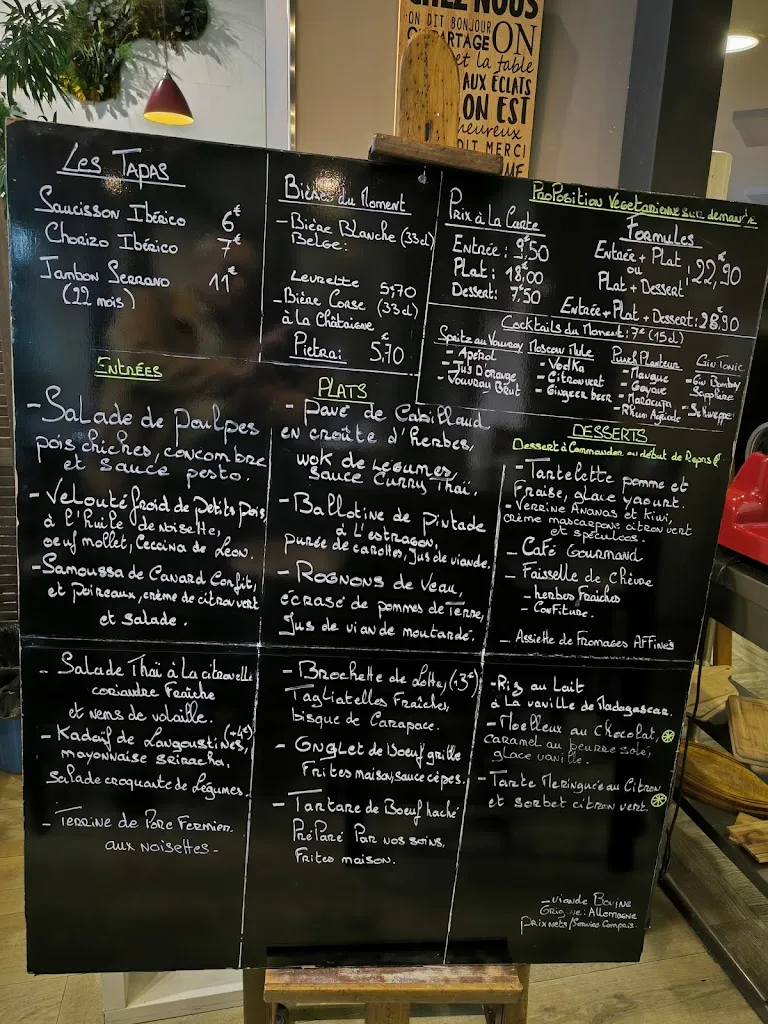 CHEZ NOUS
ON DIT BONJOUR
ON PARTAGE ON
et la table
AUX ÉCLATS
ON EST
heureux
DIT MERCI
Les Tapas
Saucisson Ibérico 6€
Chorizo Ibérico 7€
Jambon Serrano 11€
(22 mois)
Bières du Moment
- Bière Blanche (33cl)
Belge:
Levrette 5,70
- Bière Corse (33cl)
à la Châtaigne
Pietra: 5€,70
Proposition Végétarienne sur demande
Prix à La Carte
Entrée: 9€,50
Plat: 18€,00
Dessert: 7€,50
Formules
Entrée + Plat
ou
Plat + Dessert : 22€,90
Entrée + Plat + Dessert: 28€,90
Cocktails du Moment: 7€ (15cl)
Spritz au Vouvray
- Apérol
- Jus D'orange
- Vouvray Brut
Moscow Mule
- Vodka
- Citron vert
- Gingeer beer
Punch Planteur
- Mangue
- Goyave
- Maracuja
- Rhum Agricole
Gin Tonic
- Gin Bombay
Sapphire
- Schweppes
Entrées
- Salade de poulpes
pois chiches, concombre
et sauce pesto.
- Velouté froid de petits pois,
à l'huile de noisette,
oeuf mollet, Ceccina de Leon.
- Samoussa de Canard Confit,
et poireaux, crème de citron vert
et salade.
PLATS
- Pavé de Cabillaud
en croûte d'herbes,
wok de légumes,
sauce Curry Thaï.
- Ballotine de Pintade
à L'estragon,
purée de carottes, jus de viande.
- Rognons de Veau,
écrasé de pommes de Terre,
Jus de viande moutarde.
DESSERTS
Dessert à Commander au début de Repas
- Tartelette pomme et
Fraise, glace yaourt.
- Verrine Ananas et Kiwi,
crème mascarpone citron vert
et spéculoos.
- Café Gourmand
- Faisselle de Chèvre
- herbes Fraîches
- Confiture.
- Assiette de Fromages Affinés
- Salade Thaï à La citronelle
coriandre Fraîche
et nems de volaille.
- Kadaïf de Langoustines, (+4€)
mayonnaise sriracha,
salade croquante de légumes.
- Terrine de Porc Fermier
aux noisettes -
- Brochette de Lotte, (+3€)
Tagliatelles Fraîches,
bisque de Carapace.
- Onglet de boeuf grillé
Frites maison, sauce cèpes.
- Tartare de Boeuf haché
Préparé Par nos soins,
Frites maison.
- Riz au Lait
à La vanille de Madagascar.
- Moelleux au Chocolat,
caramel au beurre salé,
glace vanille.
- Tarte Meringuée au Citron
et sorbet citron vert.
- viande Bovine
Origine: Allemagne
Prix nets/Service Compris.